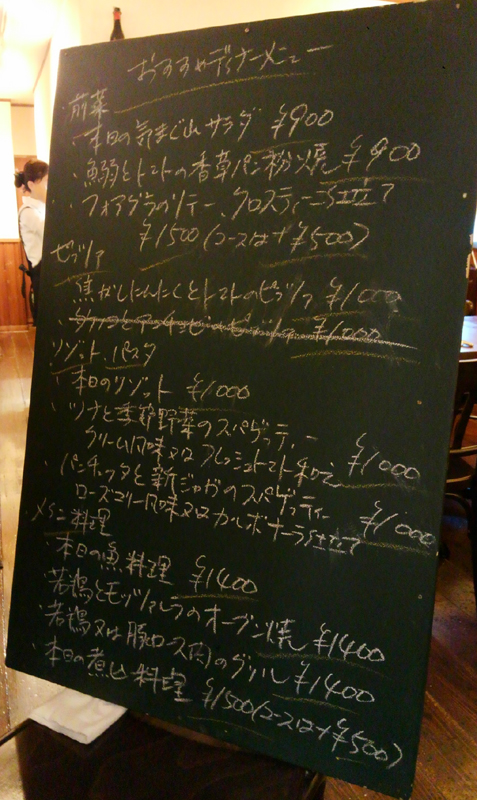 おすすめディナーメニュー
前菜
・本日の気まぐれサラダ ¥900
・鰯とトマトの香草パン粉焼 ¥900
・フォアグラのソテー、クロスティーニ仕立て
¥1500(コースは+¥500)
ピッツァ
・焦がしにんにくとトマトのピッツァ ¥1000
¥1000
リゾット、パスタ
・本日のリゾット ¥1000
・ツナと季節野菜のスパゲッティー
クリーム風味又はフレッシュトマト和え ¥1000
・パンチェッタと新ジャガのスパゲッティー
ローズマリー風味又はカルボナーラ仕立て ¥1000
メイン料理
・本日の魚料理 ¥1400
・若鶏とモッツァレラのオーブン焼 ¥1400
・若鶏又は豚ロース肉のグリル ¥1400
・本日の煮込料理 ¥1500(コースは+¥500)